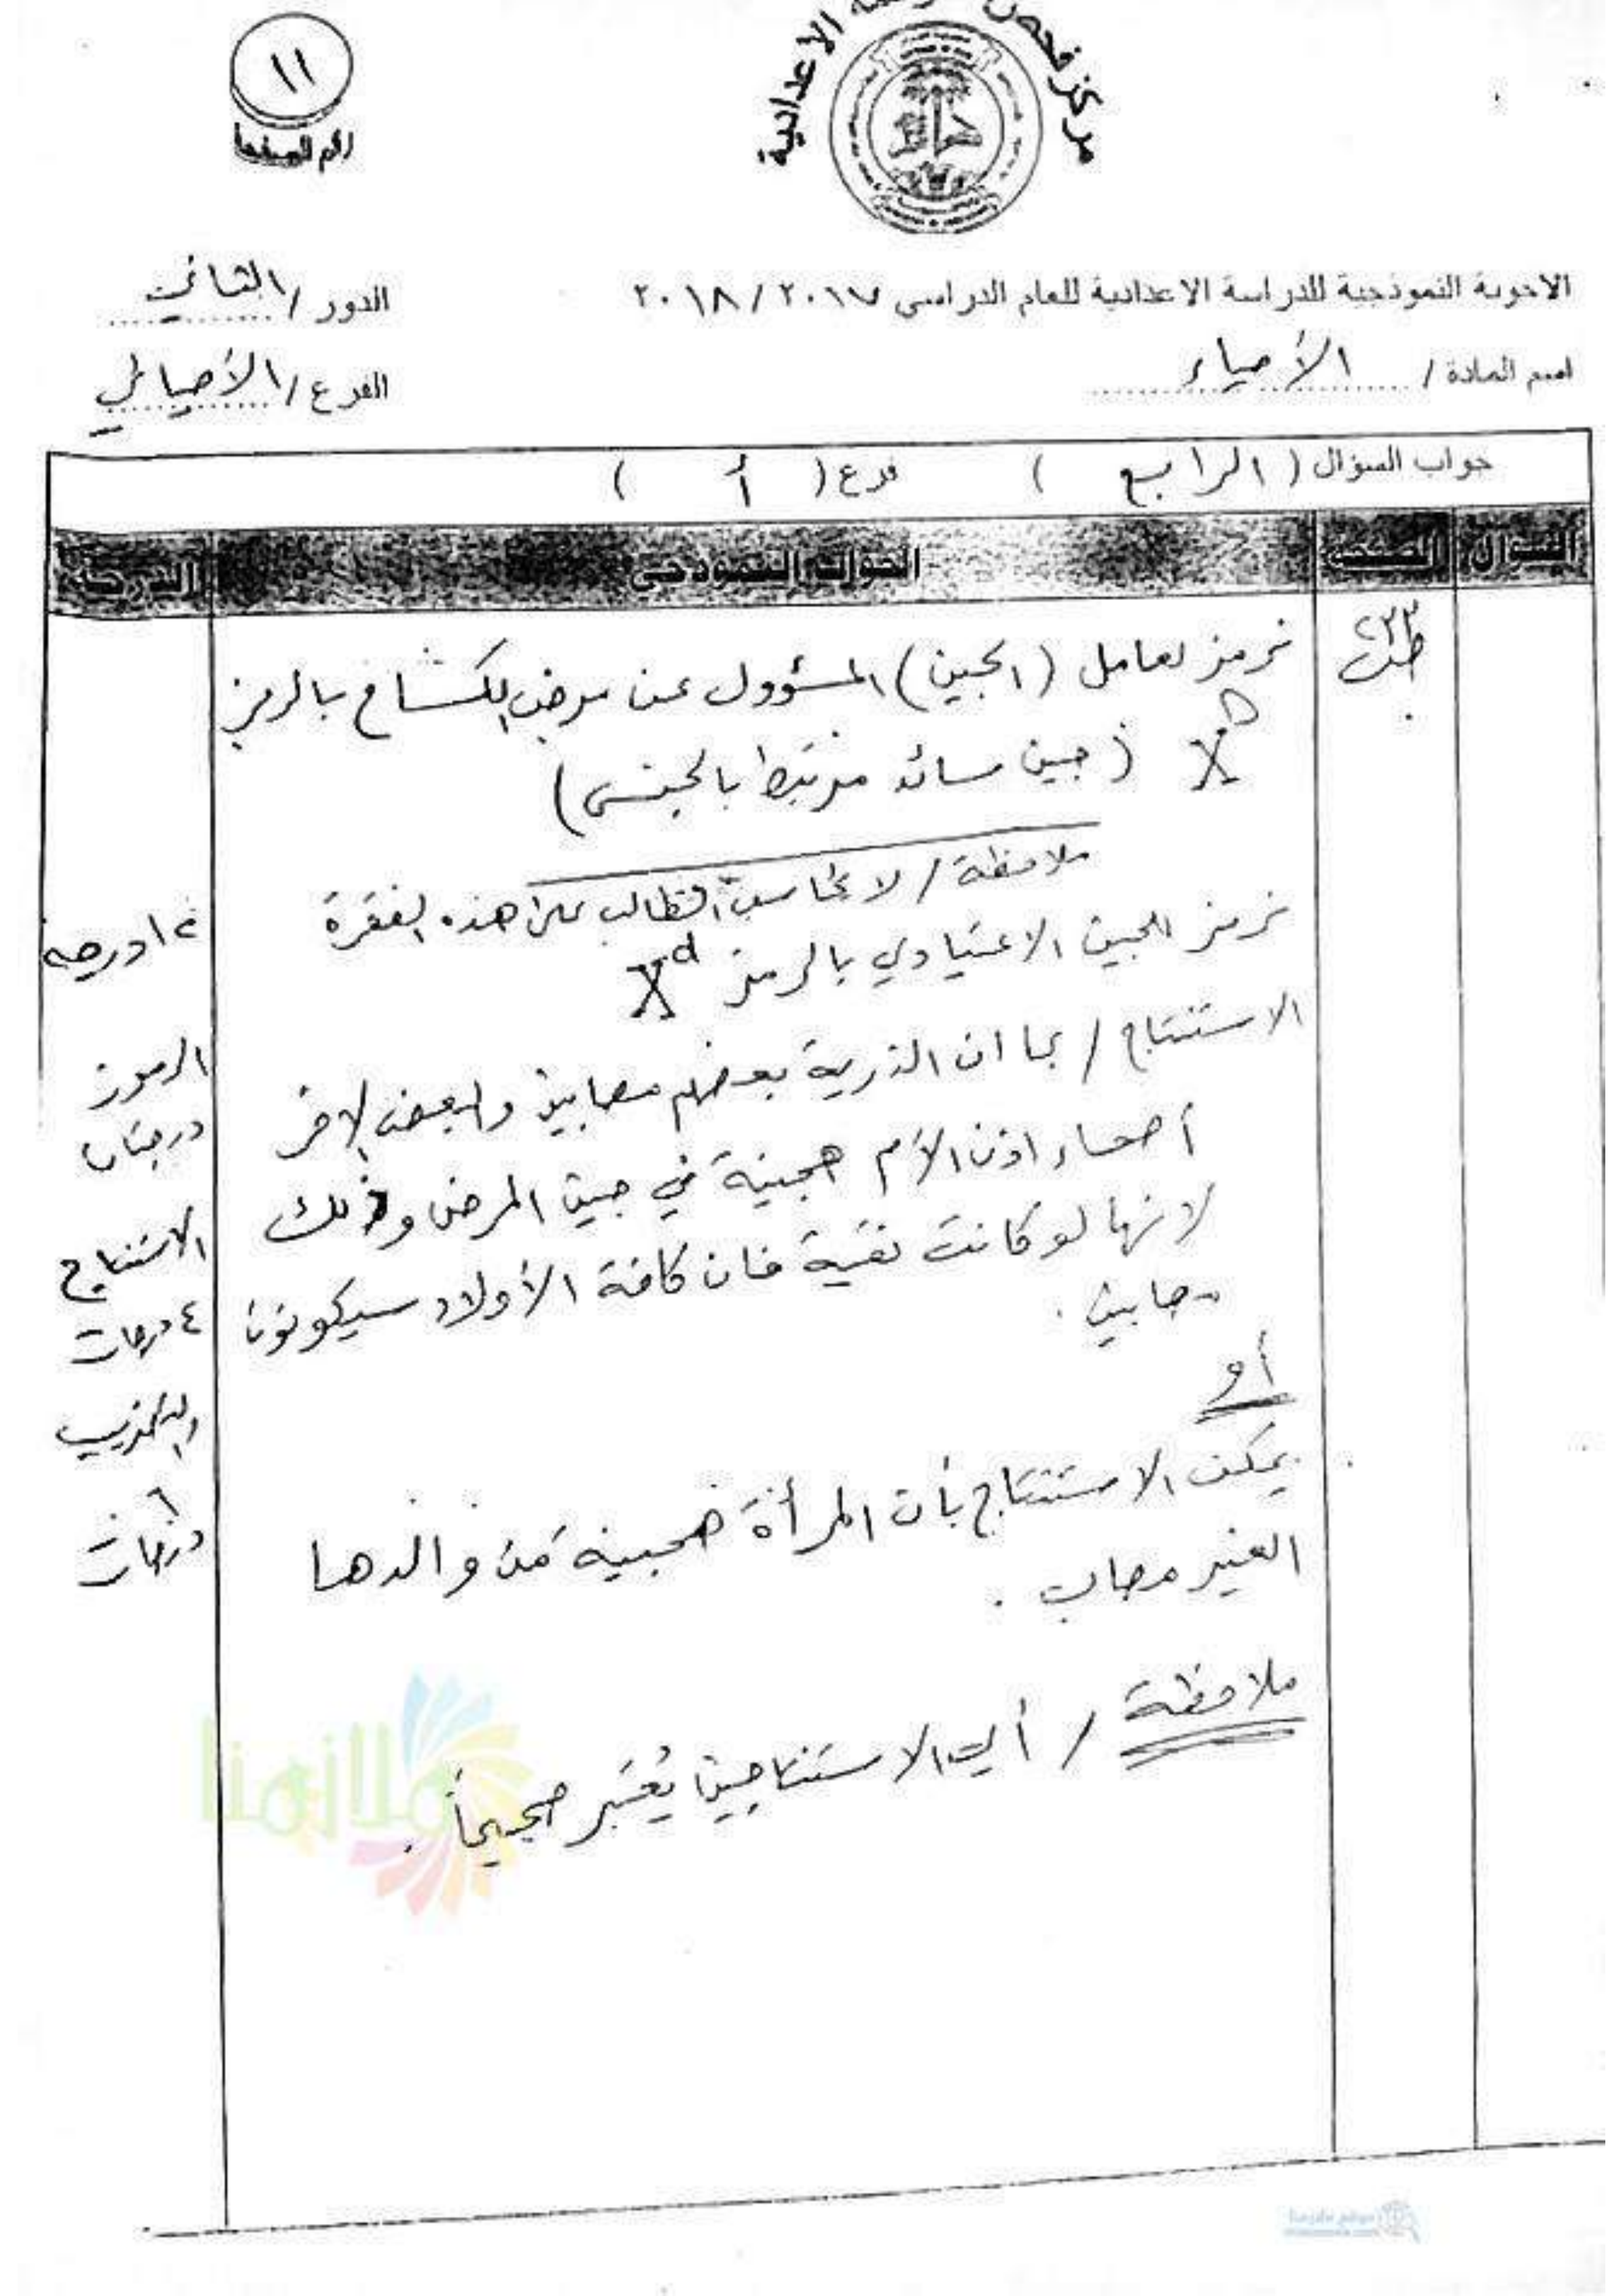 ١١
رقم الصفحة
مركز فحص الدراسة الاعدادية
الاجوبة النموذجية للدراسة الاعدادية للعام الدراسي ٢٠١٧ / ٢٠١٨
الدور / الثاني
اسم المادة / الأحياء
الفرع / الأحيائي
جواب السؤال ( الرابع ) فرع ( أ )
السؤال الصفحة الجواب النموذجي الدرجة
٢٣٣
نرمز لعامل (الجين) المسؤول عن مرض الكساح بالرمز
X^D (جين سائد مرتبط بالجنس)
ملاحظة / لا يحاسب الطالب على هذه الفقرة
١٢ درجة
نرمز للجين الاعتيادي بالرمز X^d
الاستنتاج / بما ان الذرية بعضهم مصابين والبعض الاخر
الرموز
درجتان
أصحاء اذن الأم هجينة في جين المرض وذلك
لانها لو كانت نقية فان كافة الأولاد سيكونون
الاستنتاج
٤ درجات
مصابين .
أو
والتضريب
يمكن الاستنتاج بأن المرأة هجينة من والدها
٦
درجات
الغير مصاب .
ملاحظة / أي الاستنتاجين يُعتبر صحيحاً .
ملازمنا
موقع ملازمنا